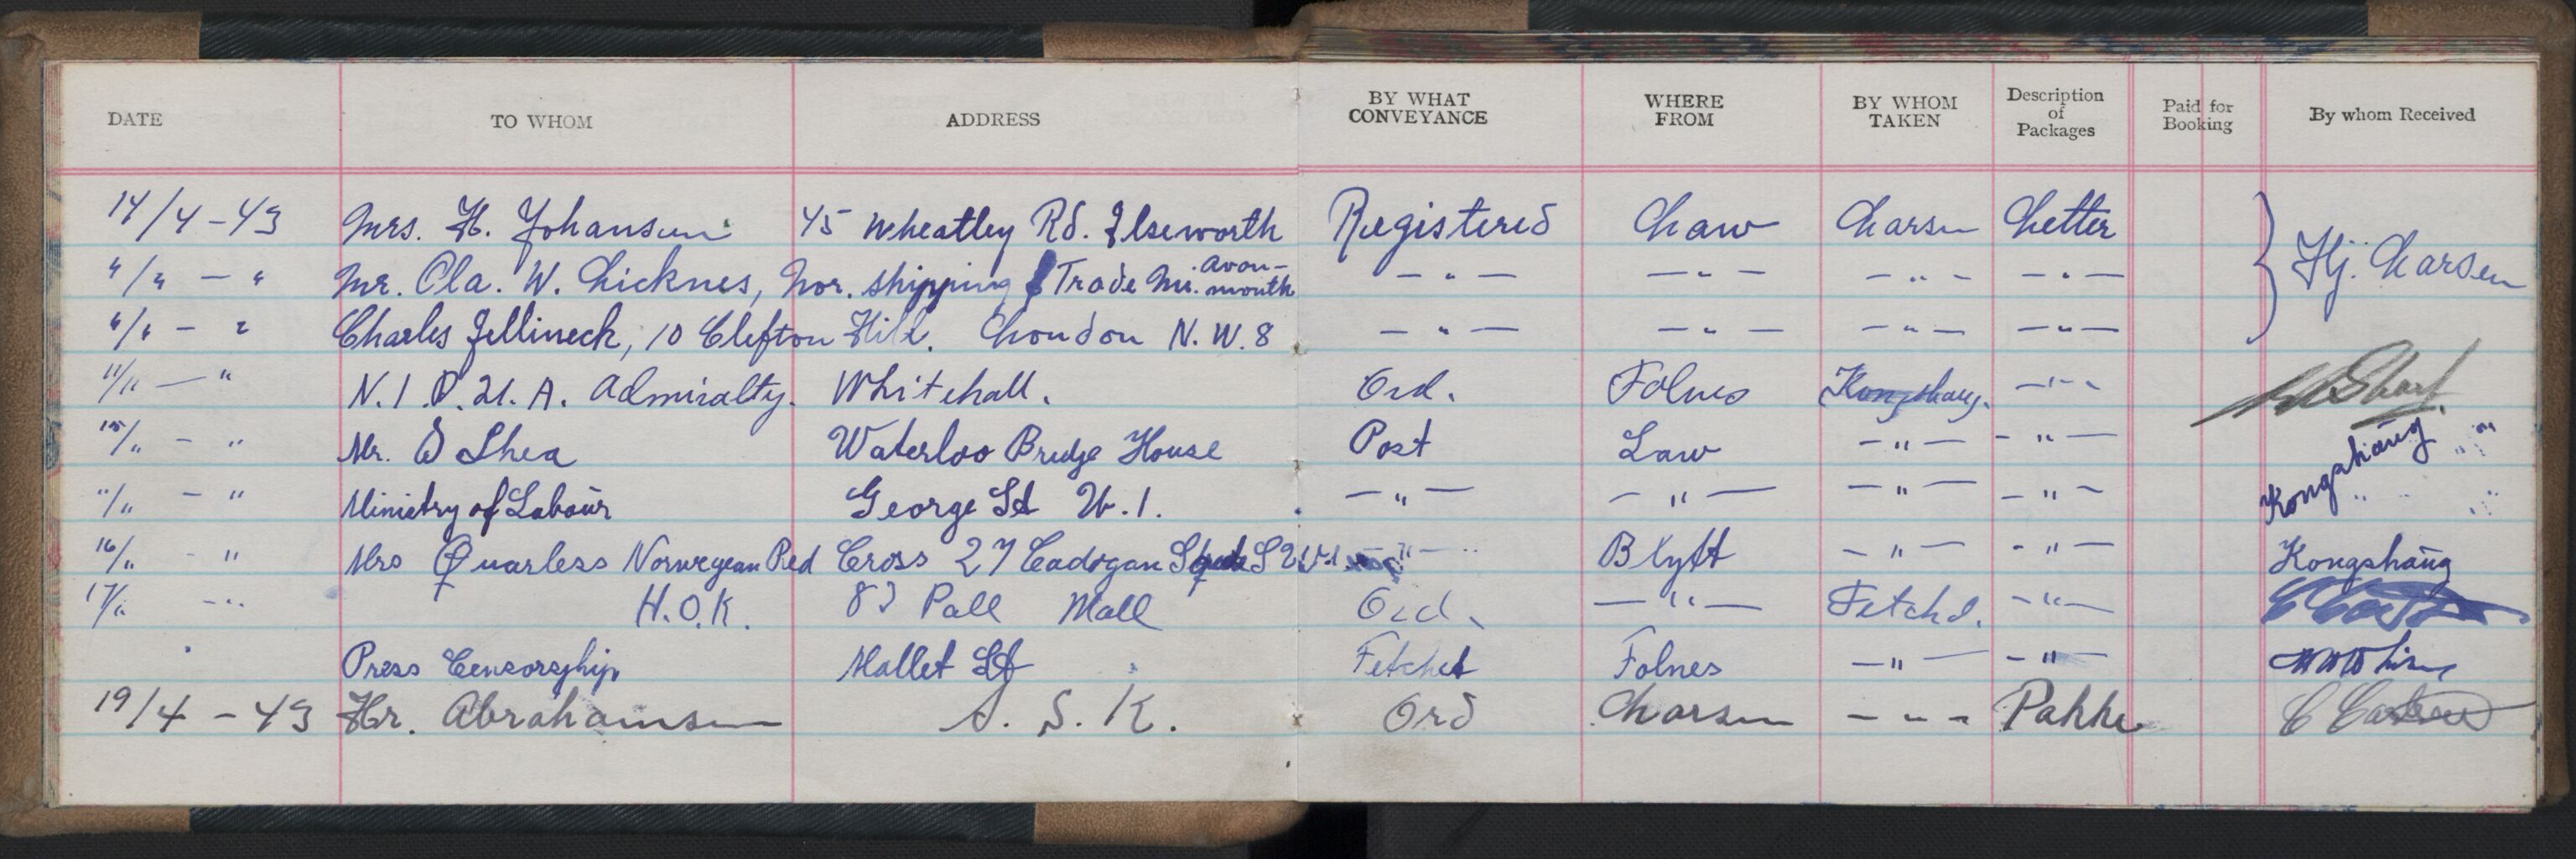 DATE TO WHOM ADDRESS BY WHAT CONVEYANCE WHERE FROM BY WHOM TAKEN Description of Packages Paid for Booking By whom Received
14/4-43 Mrs. H. Johansen 45 Wheatley Rd. Ilseworth Registered Law Larsen Letter Hj. Larsen
"/" - " Mr. Ola. W. Licknes, Nor. Shipping & Trade Mi. Avon-mouth - " - - " - - " - - " -
"/" - " Charles Jellineck, 10 Clifton Hill. London N.W.8 - " - - " - - " - - " -
"/" - " N.I.D. 21. A. Admiralty. Whitehall. Ord. Folnes Kongshaug. - " -
15/" - " Mr. O Shea Waterloo Bridge House Post Law - " - - " - Kongshaug " "
"/" - " Ministry of Labour George St W.1. - " - - " - - " - - " - " "
16/" - " Mrs Quarless Norwegian Red Cross 27 Cadogan S.W.1 - " - Blytt - " - - " - Kongshaug
17/" - " H.O.K. 83 Pall Mall Ord. - " - Fetchd. - " -
Press Censorship Mallet St Fetched Folnes - " - - " -
19/4-43 Hr. Abrahamsen A.S.K. Ord Larsen - " - Pakke